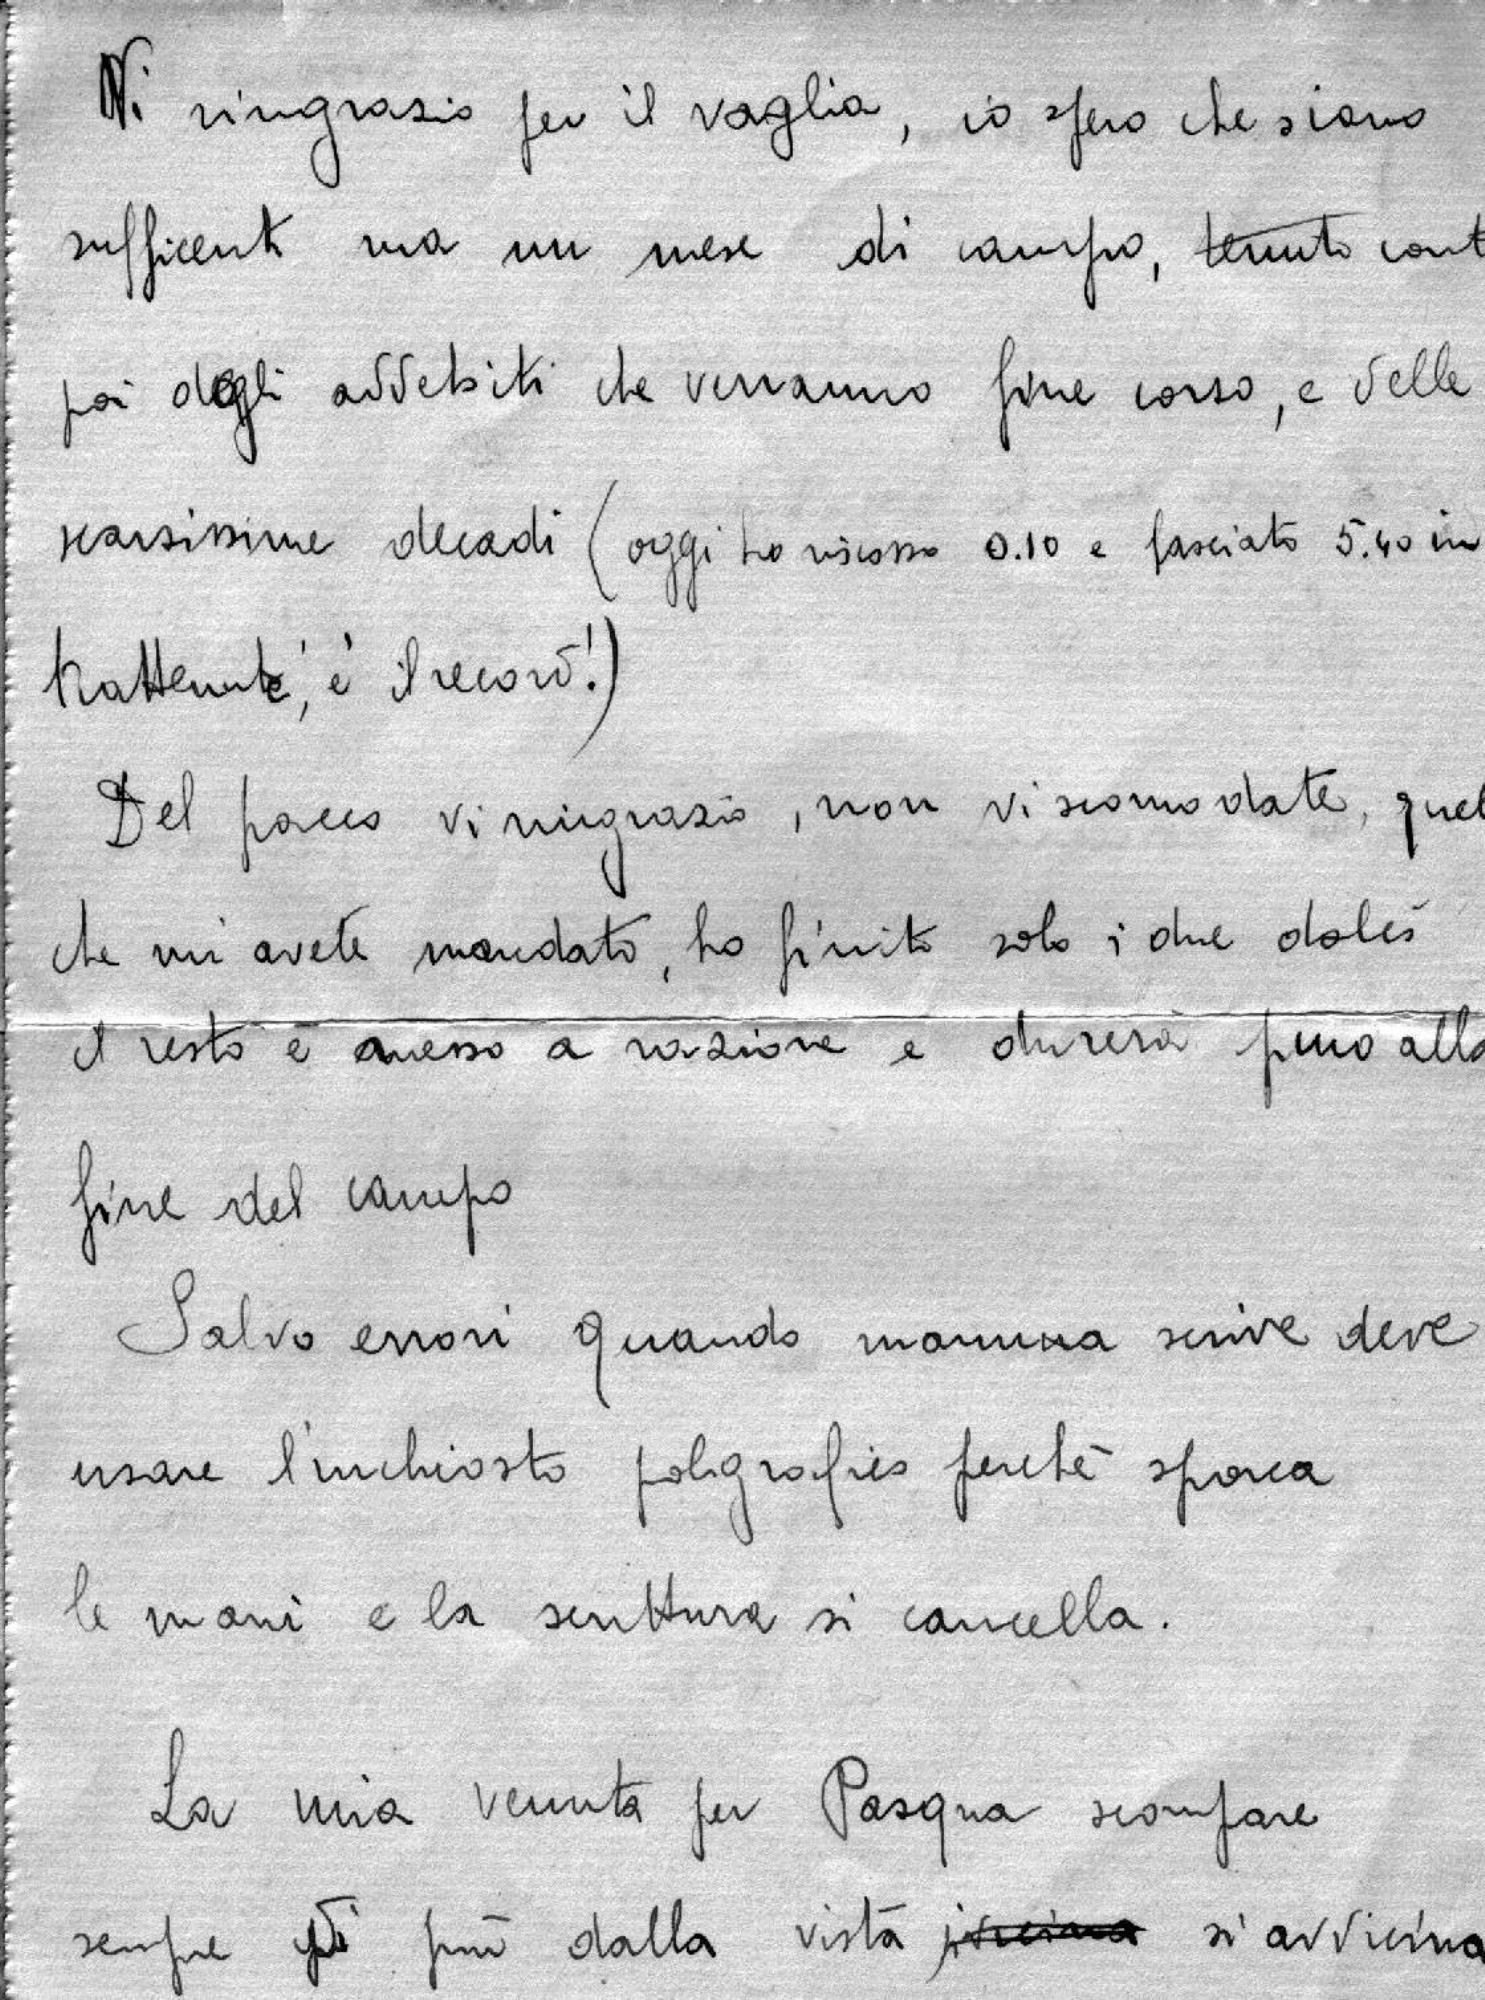 Vi ringrazio per il vaglia, io spero che siano
sufficenti ma un mese di campo, tenuto cont
poi degli addebiti che verranno fine corso, e delle
scarsissime decadi (oggi ho riscosso 0.10 e lasciato 5.40 in
trattenute, è il record!)
Del pacco vi ringrazio, non vi scomodate, quel
che mi avete mandato, ho finito solo i due dolci
il resto è messo a razione e durerà fino alla
fine del campo
Salvo errori quando mamma scrive deve
usare l'inchiosto poligrafico perchè sporca
le mani e la scrittura si cancella.
La mia venuta per Pasqua scompare
sempre di più dalla vista si avvicina